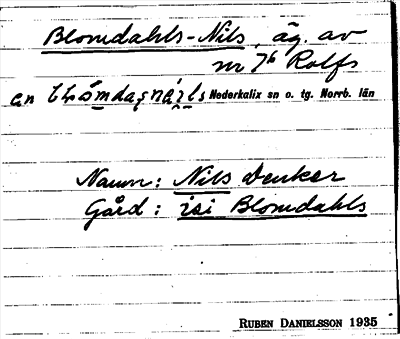 Blomdahls-Nils, äg. av
nr 7b Rolfs
Nederkalix sn o. tg. Norrb. län
Namn: Nils Denker
Gård: isi Blomdahls
RUBEN DANIELSSON 1935